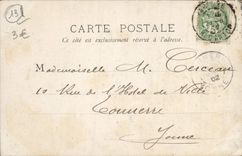 13
3€
CARTE POSTALE
Ce côté est exclusivement réservé à l'adresse.
Mademoiselle M. Cuccau
10 Rue de l'Hotel de Ville
Tonnerre
Yonne